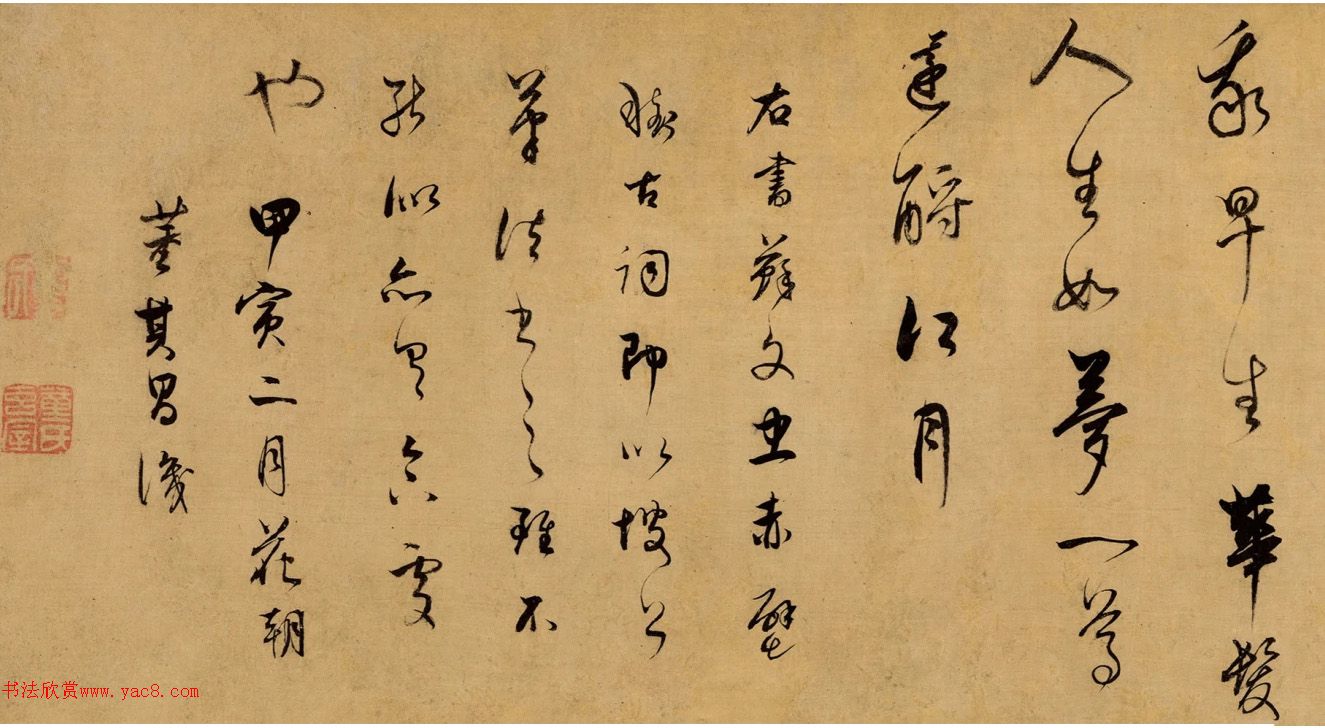 我早生華髮
人生如夢一尊
還酹江月
右書蘇文忠赤壁
懷古詞即以坡公
筆法書之雖不
能似亦有合處
也 甲寅二月花朝
董其昌識
董氏
书法欣赏www.yac8.com